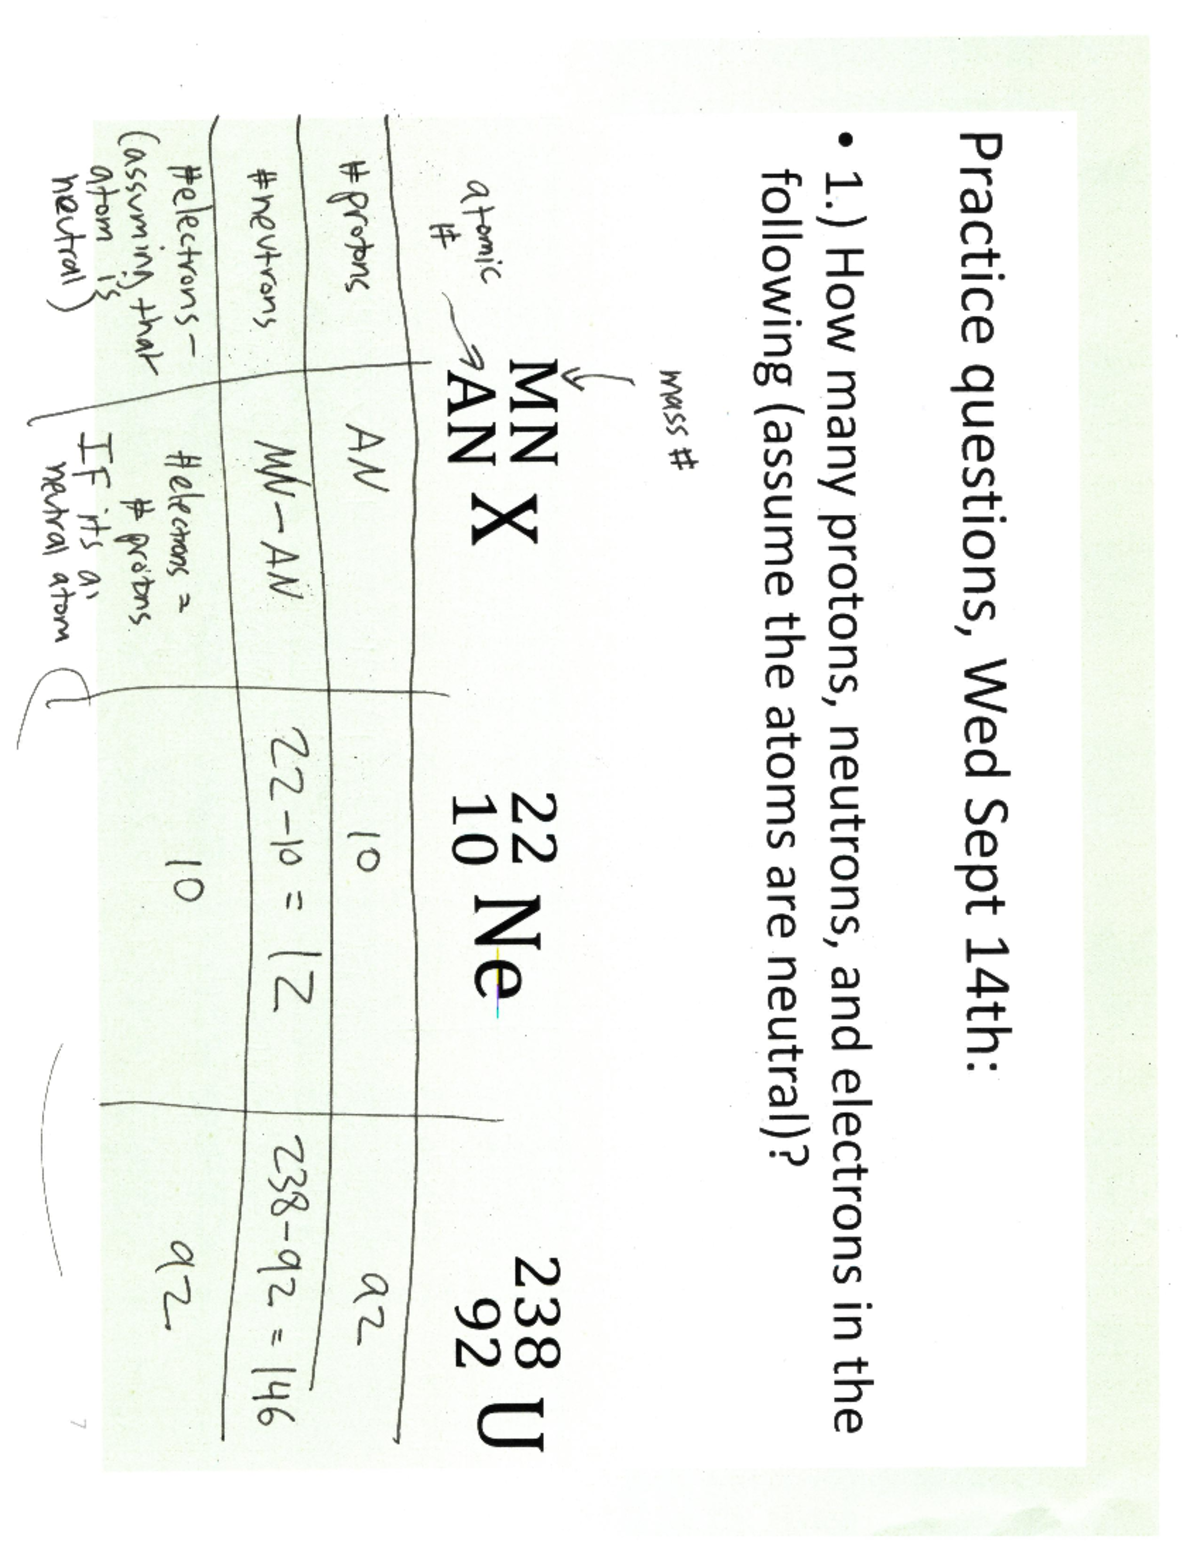 Practice questions, Wed Sept 14th:
• 1.) How many protons, neutrons, and electrons in the
following (assume the atoms are neutral)?
mass #
MN
AN X
22
10 Ne
238
92 U
atomic
#
#protons
AN
10
92
#neutrons
MN-AN
22-10 = 12
238-92 = 146
#electrons-
(assuming that
atom is
neutral)
#electrons =
# protons
IF its a
neutral atom
10
92
7